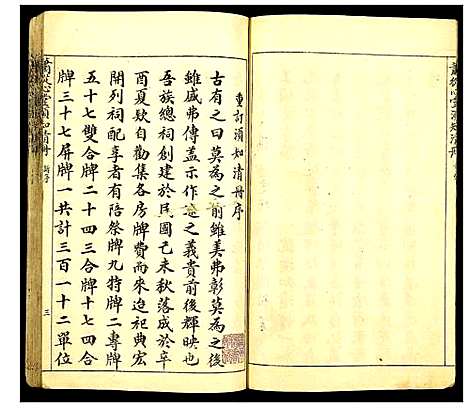 重訂須知清冊序
古有之曰莫為之前雖美弗彰莫為之後
雖盛弗傳蓋示作述之義貴前後輝映也
吾族總祠創建於民國己未秋落成於辛
酉夏欵自勸集各房牌費而來迨祀典宏
開列祠配享者有陪祭牌九特牌二專牌
五十七雙合牌二十四三合牌十七四合
牌三十七屏牌一共計三百一十二單位
蕭從心堂須知清冊
新序
三